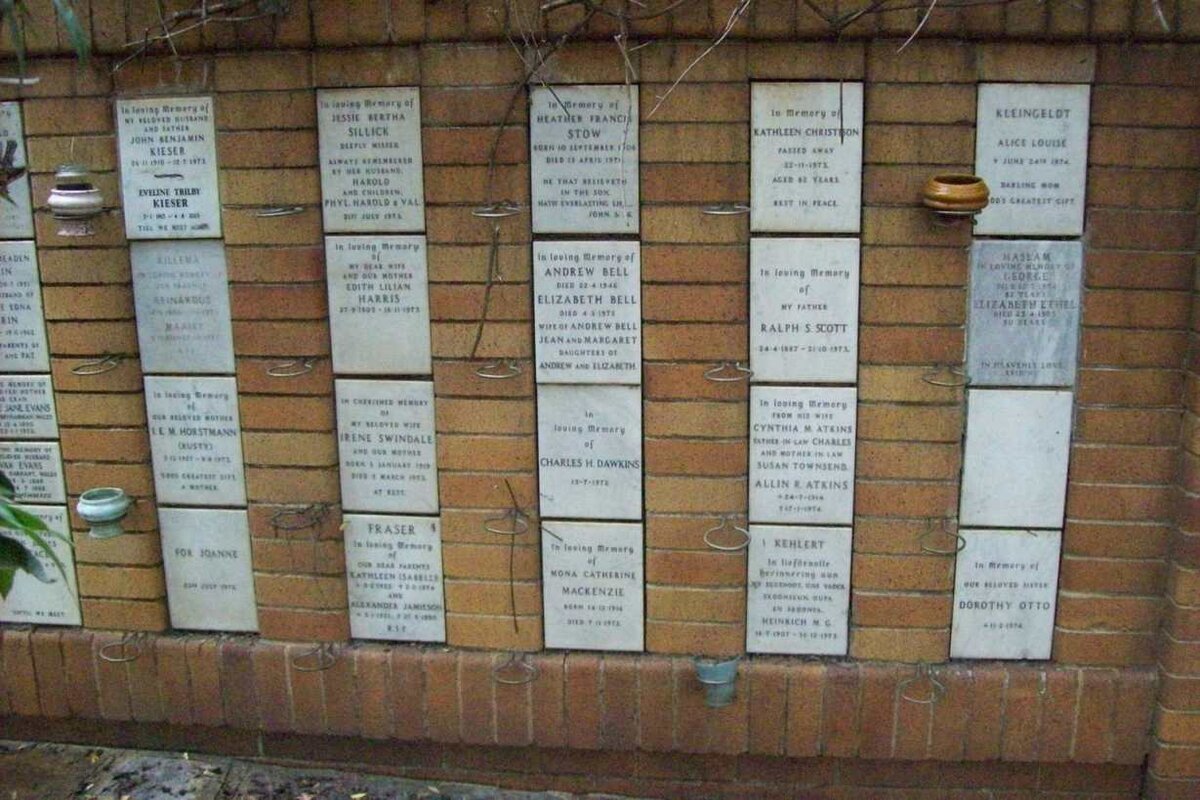 In loving Memory of
MY BELOVED HUSBAND
AND FATHER
JOHN BENJAMIN
KIESER
EVELINE TRILBY
KIESER
TILL WE MEET
In loving Memory of
JESSIE BERTHA
SILLICK
DEEPLY MISSED
ALWAYS REMEMBERED
BY HER HUSBAND,
HAROLD
AND CHILDREN,
PHYL, HAROLD & VAL.
21ST JULY 1973.
In Memory of
HEATHER FRANCIS
STOW
BORN 10 SEPTEMBER
DIED 13 APRIL 1971
HE THAT BELIEVETH
IN THE SON,
HATH EVERLASTING
JOHN
In Memory of
KATHLEEN CHRISTISON
PASSED AWAY
22-11-1973,
AGED 82 YEARS.
REST IN PEACE.
KLEINGELDT
ALICE LOUISE
9 JUNE 24TH 1974.
DARLING MOM
GOD'S GREATEST GIFT.
KILLEMA
REINARDUS
In loving Memory of
MY DEAR WIFE
AND OUR MOTHER
EDITH LILIAN
HARRIS
In loving Memory of
ANDREW BELL
DIED 22-4-1946
ELIZABETH BELL
DIED 4-5-1973
WIFE OF ANDREW BELL
JEAN AND MARGARET
DAUGHTERS OF
ANDREW AND ELIZABETH.
In loving Memory
of
MY FATHER
RALPH S. SCOTT
24-4-1887 - 21-10-1973.
HASLAM
IN LOVING MEMORY OF
GEORGE
82 YEARS
ELIZABETH ETHEL
IN HEAVENLY LOVE
In loving Memory of
OUR BELOVED MOTHER
I. E. M. HORSTMANN
(RUSTY)
GODS GREATEST GIFT.
A MOTHER.
IN CHERISHED MEMORY
OF
MY BELOVED WIFE
IRENE SWINDALE
AND OUR MOTHER
BORN 5 JANUARY 1919
DIED 5 MARCH 1973.
AT REST.
In
loving Memory
of
CHARLES H. DAWKINS
13-7-1973
In loving Memory
FROM HIS WIFE
CYNTHIA M. ATKINS
FATHER IN LAW CHARLES
AND MOTHER IN LAW
SUSAN TOWNSEND.
ALLIN R. ATKINS
FOR JOANNE
FRASER
In loving Memory
of
OUR DEAR PARENTS
KATHLEEN ISABELLE
AND
ALEXANDER JAMIESON
R.I.P.
In loving Memory
of
MONA CATHERINE
MACKENZIE
BORN 14-12-1916
DIED 7-11-1973.
KEHLERT
In liefdevolle
herinnering aan
EN SKOONPA.
HEINRICH M. G.
In Memory of
OUR BELOVED SISTER
DOROTHY OTTO
JANE EVANS
EVANS
UNTIL WE MEET